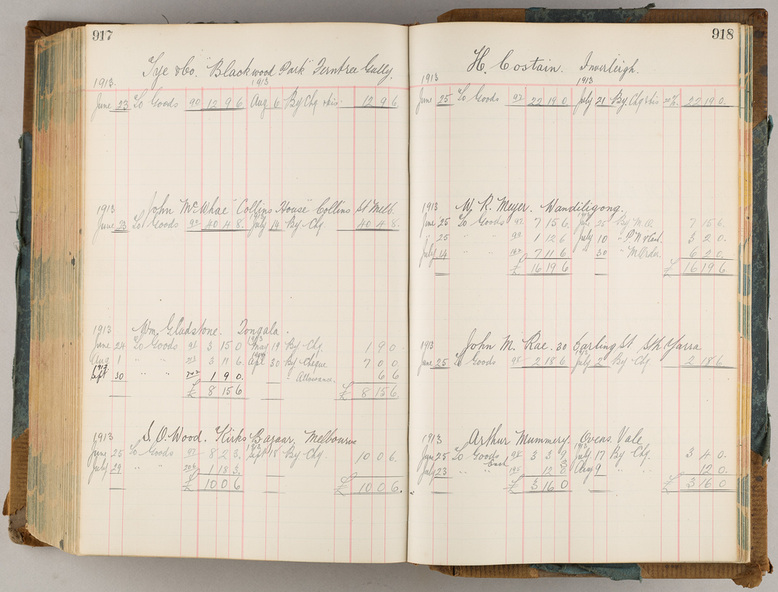 917
Tye & Co. "Blackwood Park" Ferntree Gully.
1913 1913
June 23 To Goods 90 12 9 6 Aug 6 By Chq 12 9 6
1913 John McWhae "Collins House" Collins St Melb.
June 23 To Goods 92 40 4 8 July 14 By Chq 40 4 8
1913 Wm. Gladstone. Tongala.
June 24 To Goods 3 15 0 May 19 By Chq 1 9 0
Aug 1 " " 3 11 6 30 By Cheque 7 0 0
1913
Sept 30 " " 1 9 0 " Allowance 6 6
£ 8 15 6 £ 8 15 6
1913 S. O. Wood. Kirks Bazaar, Melbourne
June 25 To Goods 8 2 3 Sept 18 By Chq 10 0 6
July 29 " " 1 18 3
£ 10 0 6 £ 10 0 6
918
H. Costain. Inverleigh.
1913 1913
June 25 To Goods 92 22 19 0 July 21 By Chq 22 19 0
1913 W. R. Meyer. Wandiligong.
June 25 To Goods 92 7 15 6 June 25 By M.O. 7 15 6
" 25 " " 1 12 6 July 10 " P.N. 3 2 0
July 14 " " 7 11 6 " 30 " M Order 6 2 0
£ 16 19 6 £ 16 19 6
1913 John M. Rae. 30 Darling St. Sth Yarra
June 25 To Goods 95 2 18 6 July 2 By Chq 2 18 6
1913 Arthur Mummery. Ovens Vale
June 25 To Goods 95 3 3 July 17 By Chq. 3 4 0
July 23 " " 12 8 Aug 9 " " 12 0
£ 3 16 0 £ 3 16 0